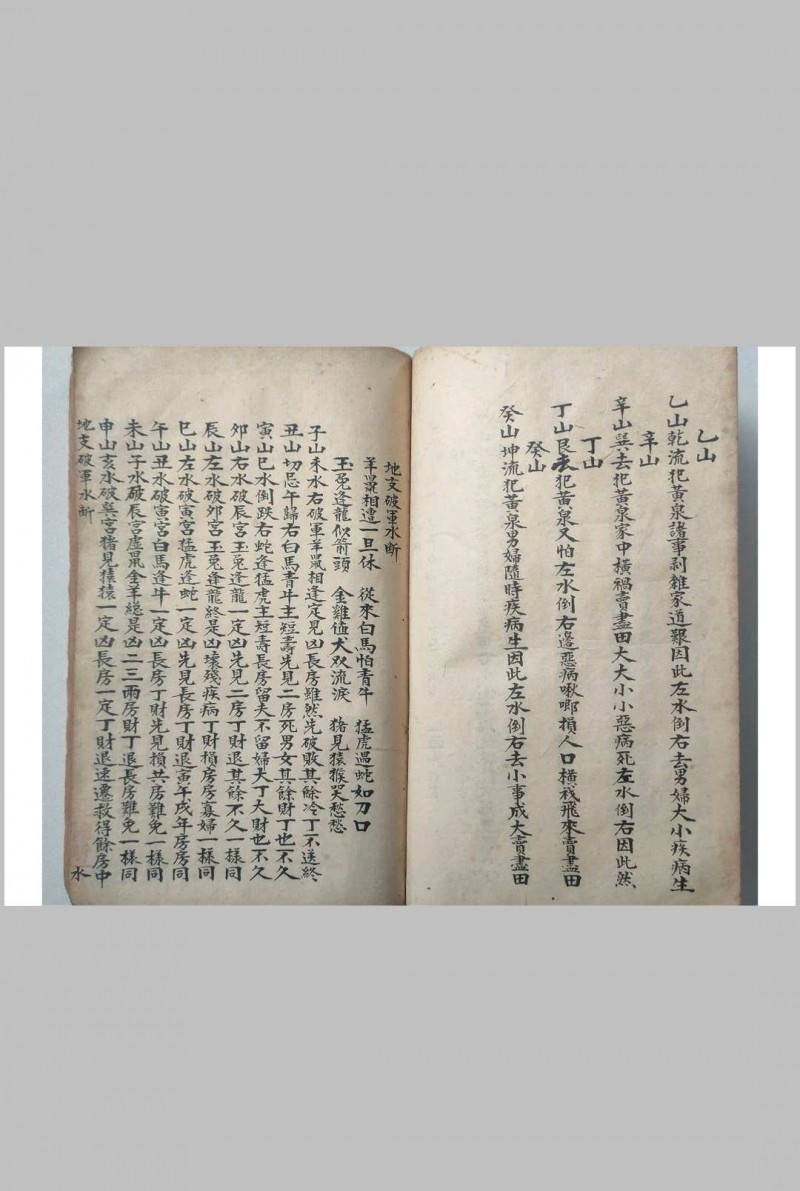 乙山
乙山乾流犯黃泉諸事剥雜家道艱因此左水倒右去男婦大小疾病生
辛山
辛山巽去犯黃泉家中橫禍賣盡田大大小小惡病死左水倒右因此然
丁山
丁山艮去犯黃泉又怕左水倒右邊惡病啾唧損人口橫禍飛來賣盡田
癸山
癸山坤流犯黃泉男婦隨時疾病生因此左水倒右去小事成大賣盡田
地支破軍水断
羊鼠相逢一旦休 從來白馬怕青牛 猛虎過蛇如刀口
玉兎逢龍似箭頭 金雞值犬双流淚 猪見猿猴哭愁愁
子山未水右破軍羊鼠相逢定見凶長房雖然先破敗其餘冷丁不送終
丑山切忌午歸右白馬青牛主短壽先見二房死男女其餘財丁也不久
寅山巳水倒跌右蛇逢猛虎主短壽長房留夫不留婦大丁大財也不久
夘山右水破辰宮玉兎逢龍一定凶先見二房丁財退其餘不久一樣同
辰山左水破夘宮玉兎逢龍終是凶壞殘疾病丁財損房房寡婦一樣同
巳山左水破寅宮猛虎逢蛇一定凶先見長房丁財退寅午戌年房房同
午山丑水破寅宮白馬逢牛一定凶長房丁財先見損共房難免一樣同
未山子水破辰宮虛鼠金羊總是凶二三兩房財丁退長房難免一樣同
申山亥水破巽宮猪見猿猿一定凶長房一定丁財退速遷救得餘房中
地支破軍水断 水